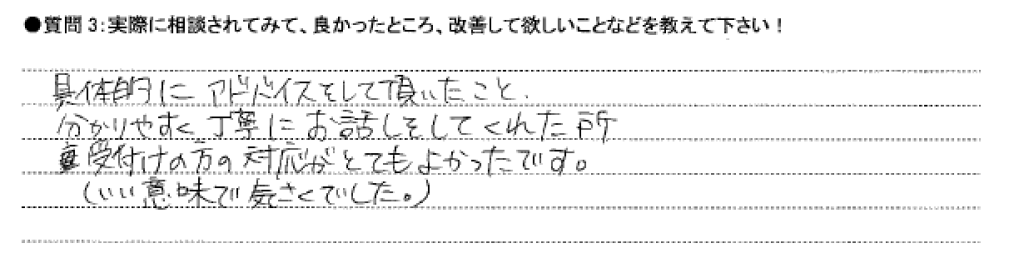 ●質問3:実際に相談されてみて、良かったところ、改善して欲しいことなどを教えて下さい!
具体的に アドバイスをして頂いたこと.
分かりやすく丁寧にお話しをしてくれた所
受付けの方の対応がとてもよかったです。
(いい意味で気さくでした。)